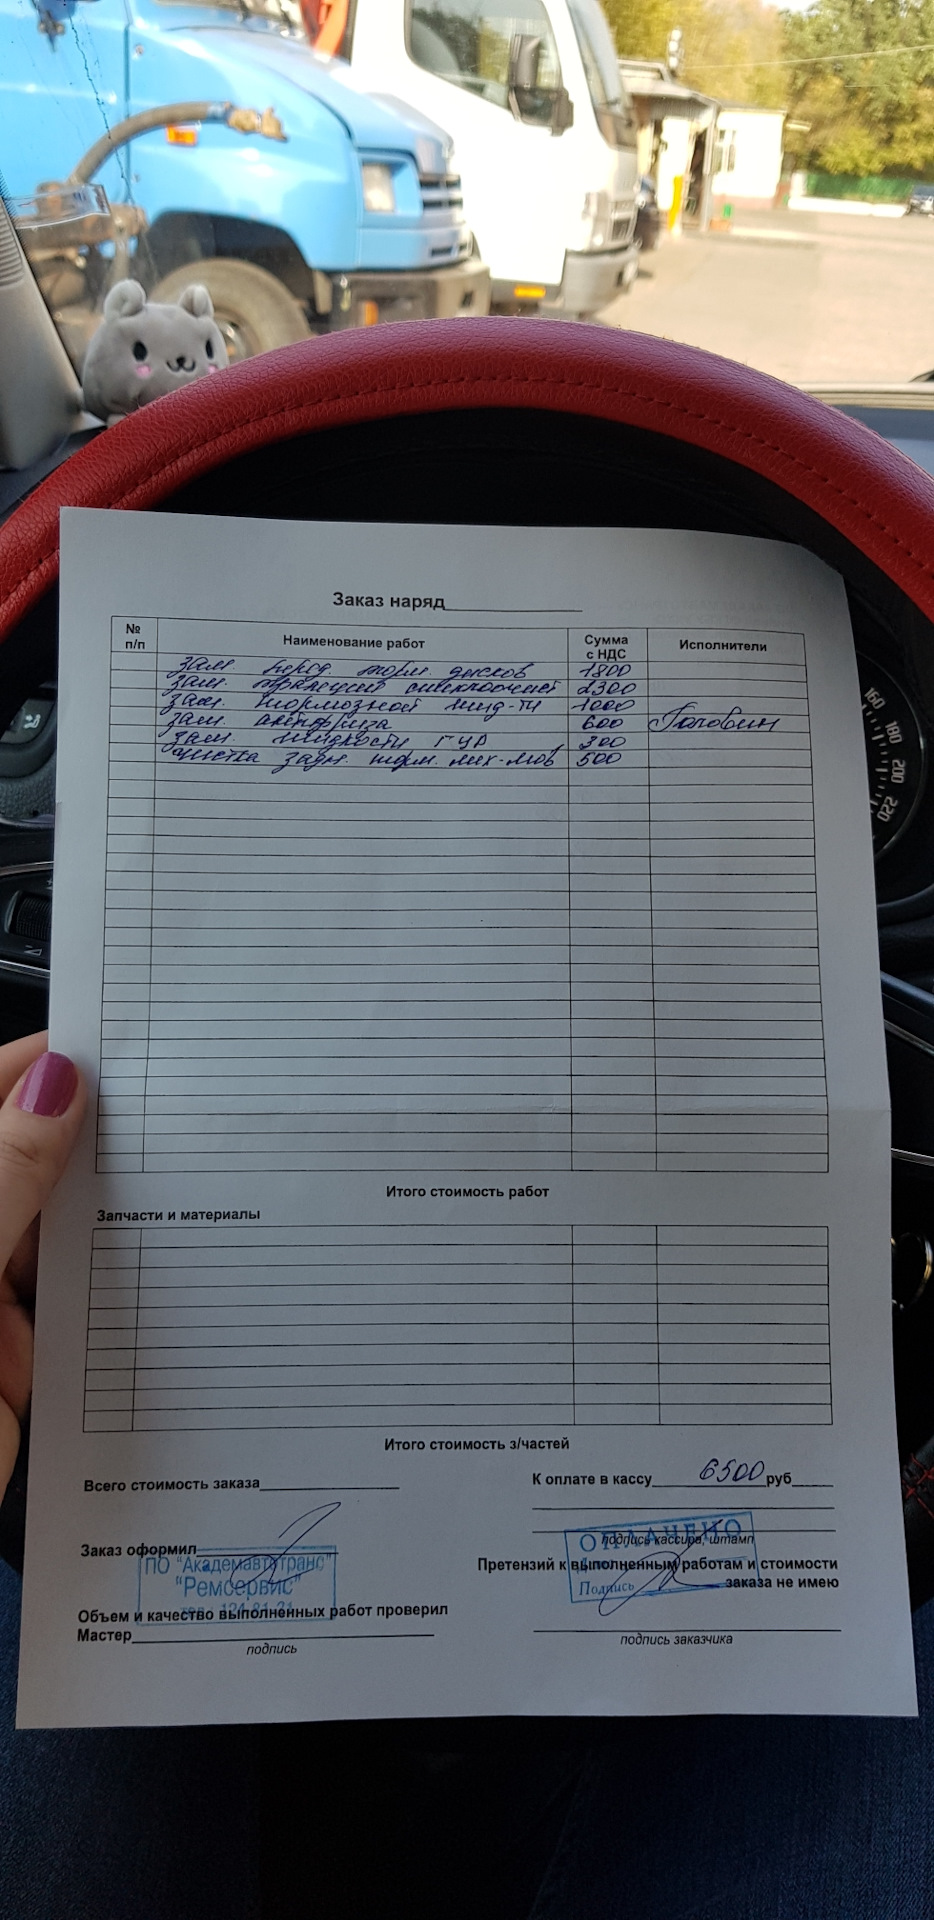 Заказ наряд
№ п/п Наименование работ Сумма с НДС Исполнители
зам. перед. торм. дисков 1800
зам. трапеций стеклоочист 2300
зам. тормозной жид-ти 1000
зам. антифриза 600 Головин
зам. жидкости ГУР 300
чистка задн. торм. мех-мов 500
Итого стоимость работ
Запчасти и материалы
Итого стоимость з/частей
Всего стоимость заказа К оплате в кассу 6500 руб
ОПЛАЧЕНО
подпись кассира, штамп
Заказ оформил
ПО "Академавтотранс"
"Ремсервис"
Претензий к выполненным работам и стоимости
Подпись
заказа не имею
Объем и качество выполненных работ проверил
Мастер
подпись
подпись заказчика
160
180
200
220